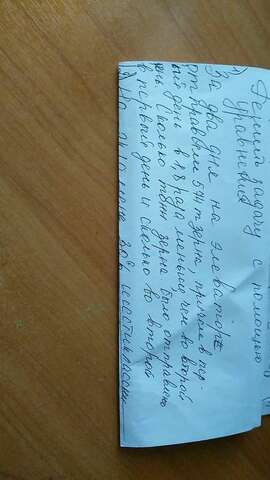 Решить задачу с помощью
уравнения
За два дня на элеватор
отправили 574 т зерна, причём в пер-
вый день в 1,8 раза меньше, чем во второй
день. Сколько тонн зерна было отправлено
в первый день и сколько во второй
30%